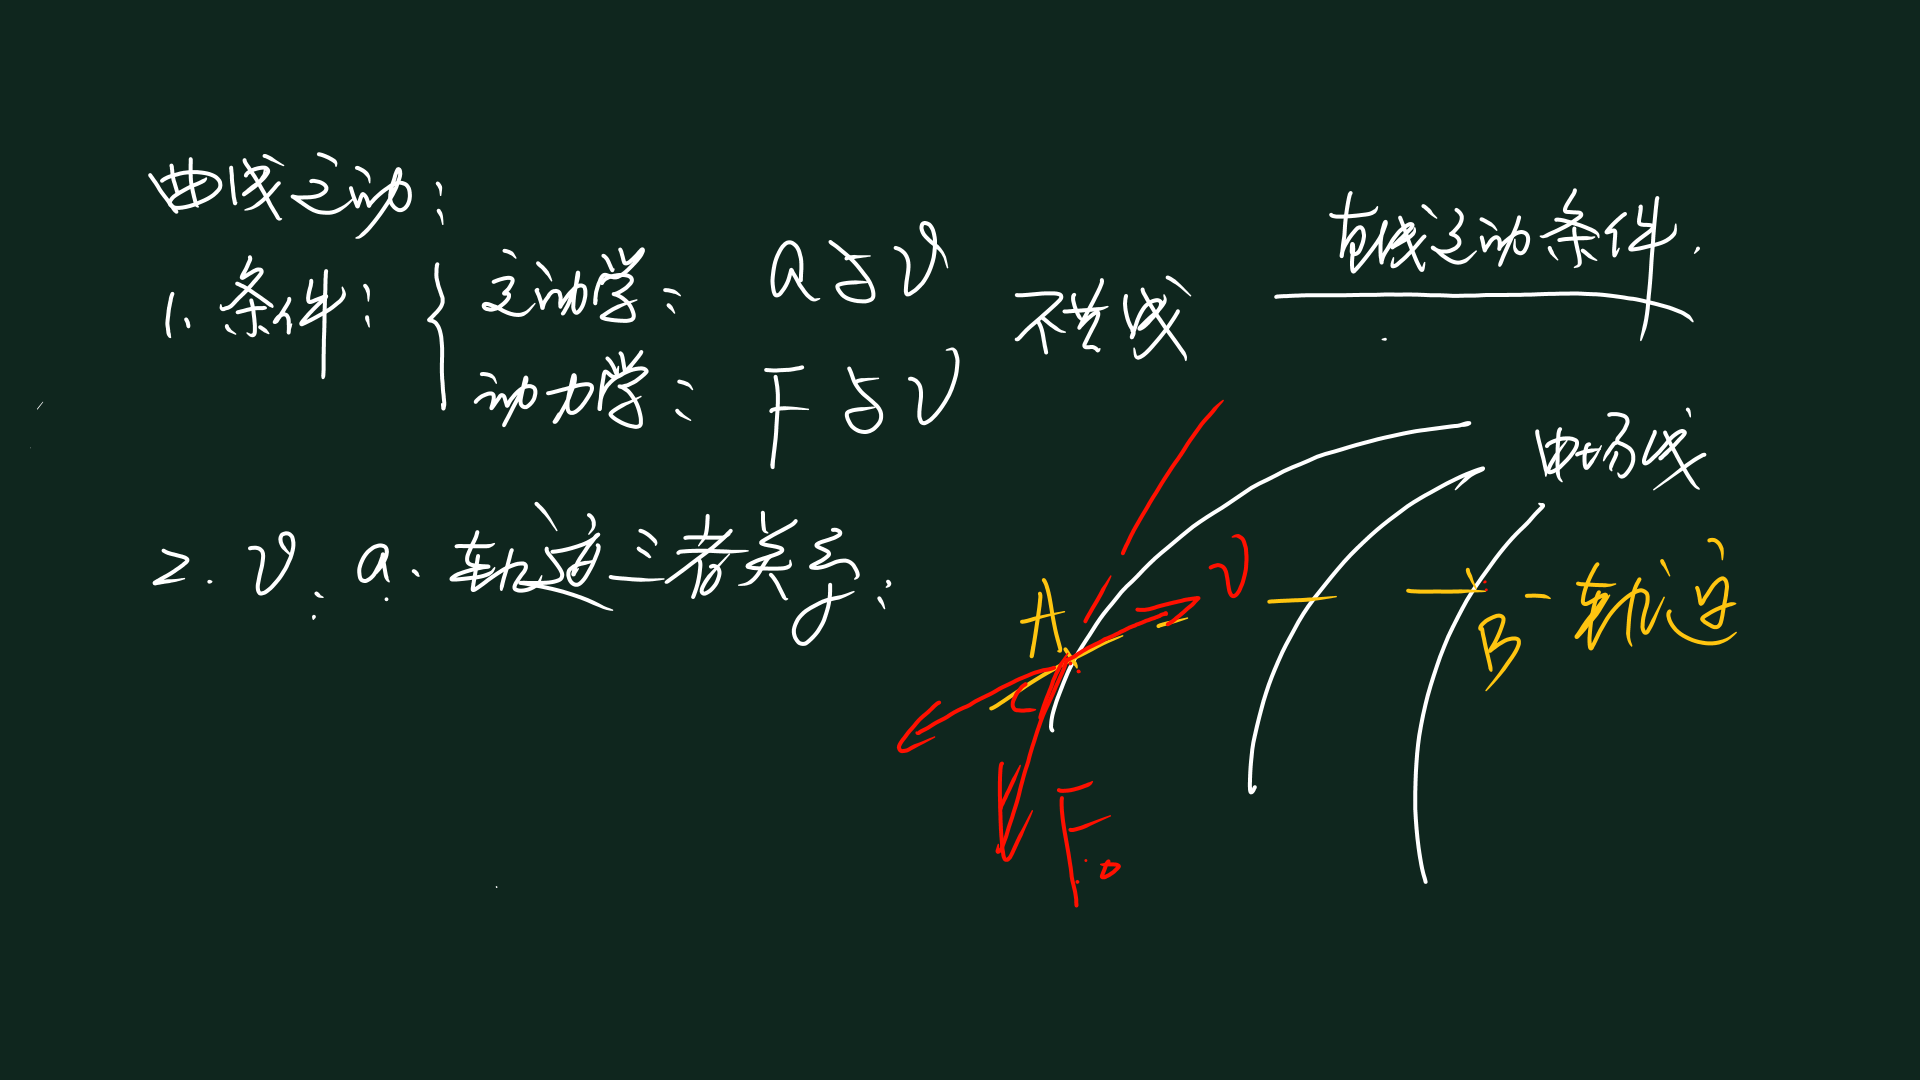 曲线运动：
1. 条件：
运动学： a与v
动力学： F与v
不共线
2. v、a、轨迹三者关系：
直线运动条件.
电场线
v
A
B
轨迹
F